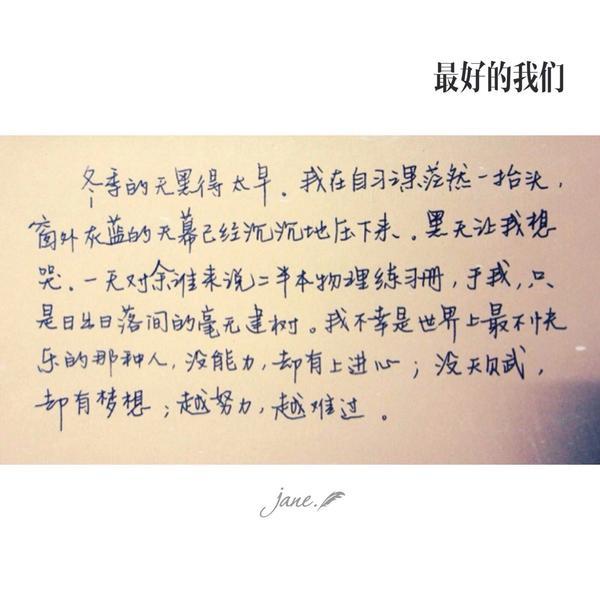 最好的我们
冬季的天黑得太早。我在自习课茫然一抬头，
窗外灰蓝的天幕已经沉沉地压下来、。黑天让我想
哭。一天对余淮来说二半本物理练习册，于我，只
是日出日落间的毫无建树。我不幸是世界上最不快
乐的那种人，没能力，却有上进心；没天赋，
却有梦想；越努力，越难过。
jane.